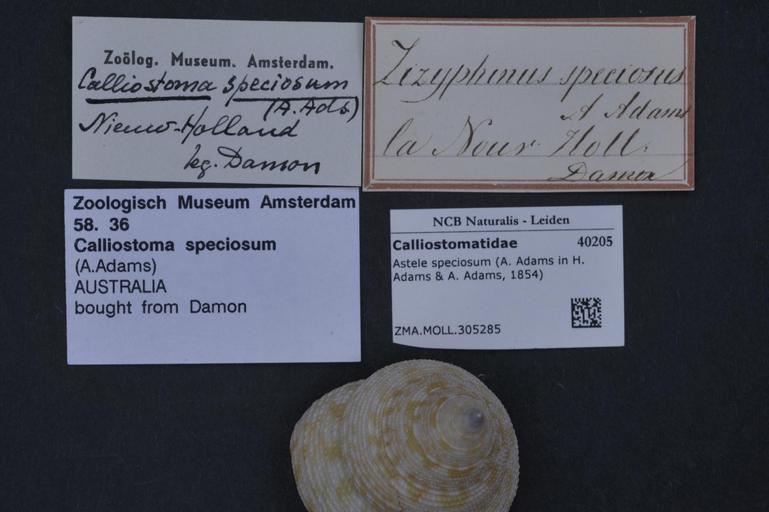 Zoölog. Museum. Amsterdam.
Calliostoma speciosum
(A. Ads)
Nieuw-Holland
leg. Damon
Zizyphinus speciosus
A Adams
la Nouv. Holl.
Damon
Zoologisch Museum Amsterdam
58. 36
Calliostoma speciosum
(A.Adams)
AUSTRALIA
bought from Damon
NCB Naturalis - Leiden
Calliostomatidae 40205
Astele speciosum (A. Adams in H.
Adams & A. Adams, 1854)
ZMA.MOLL.305285